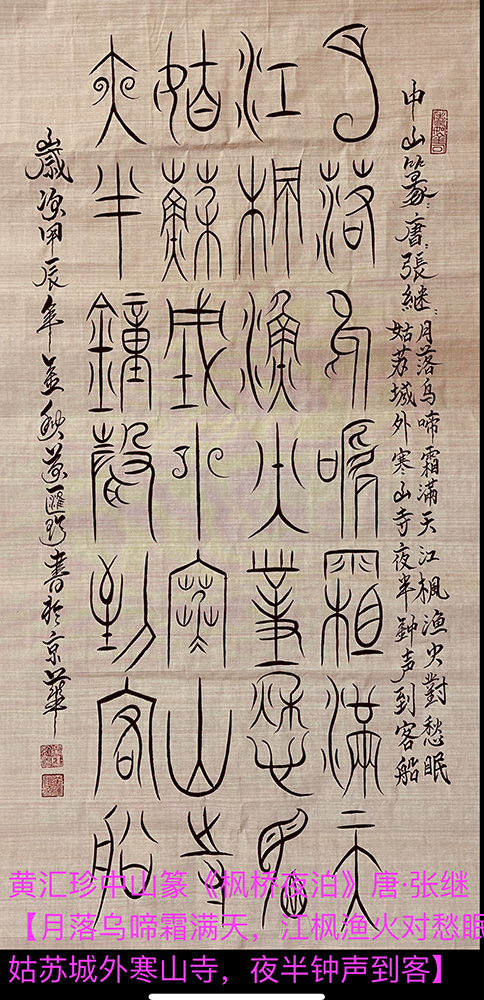 中山篆:唐:張継:
月落乌啼霜滿天江楓漁火對愁眠
姑苏城外寒山寺夜半鈡声到客船
月落烏啼霜滿天
江楓漁火對愁眠
姑蘇城外寒山寺
夜半鐘聲到客船
歲次甲辰年孟秋黄匯珍書於京華
黄汇珍中山篆《枫桥夜泊》唐·张继
【月落乌啼霜满天，江枫渔火对愁眠
姑苏城外寒山寺，夜半钟声到客】